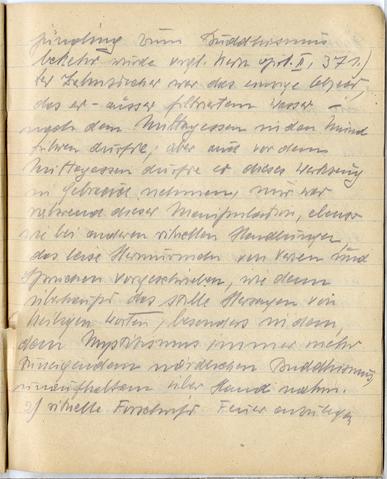 zum Buddhismus
bekehrt wurde vergl. Kern op.cit. II, 371.)
Der Zahnstocher war das einzige Objekt,
das er - ausser filtriertem Wasser -
nach dem Mittagessen in den Mund
führen durfte; aber auch vor dem
Mittagessen durfte er dieses Werkzeug
in Gebrauch nehmen, nur war
während dieser Manipulation, ebenso
wie bei anderen rituellen Handlungen,
das leise Hermurmeln von Versen und
Sprüchen vorgeschrieben, wie denn
überhaupt das stille Hersagen von
heiligen Worten, besonders in dem,
dem Mystizismus immer mehr
zuneigendem nördlichen Buddhismus,
unaufhaltsam über Hand nahm.
2) rituelle Vorschrift Feuer